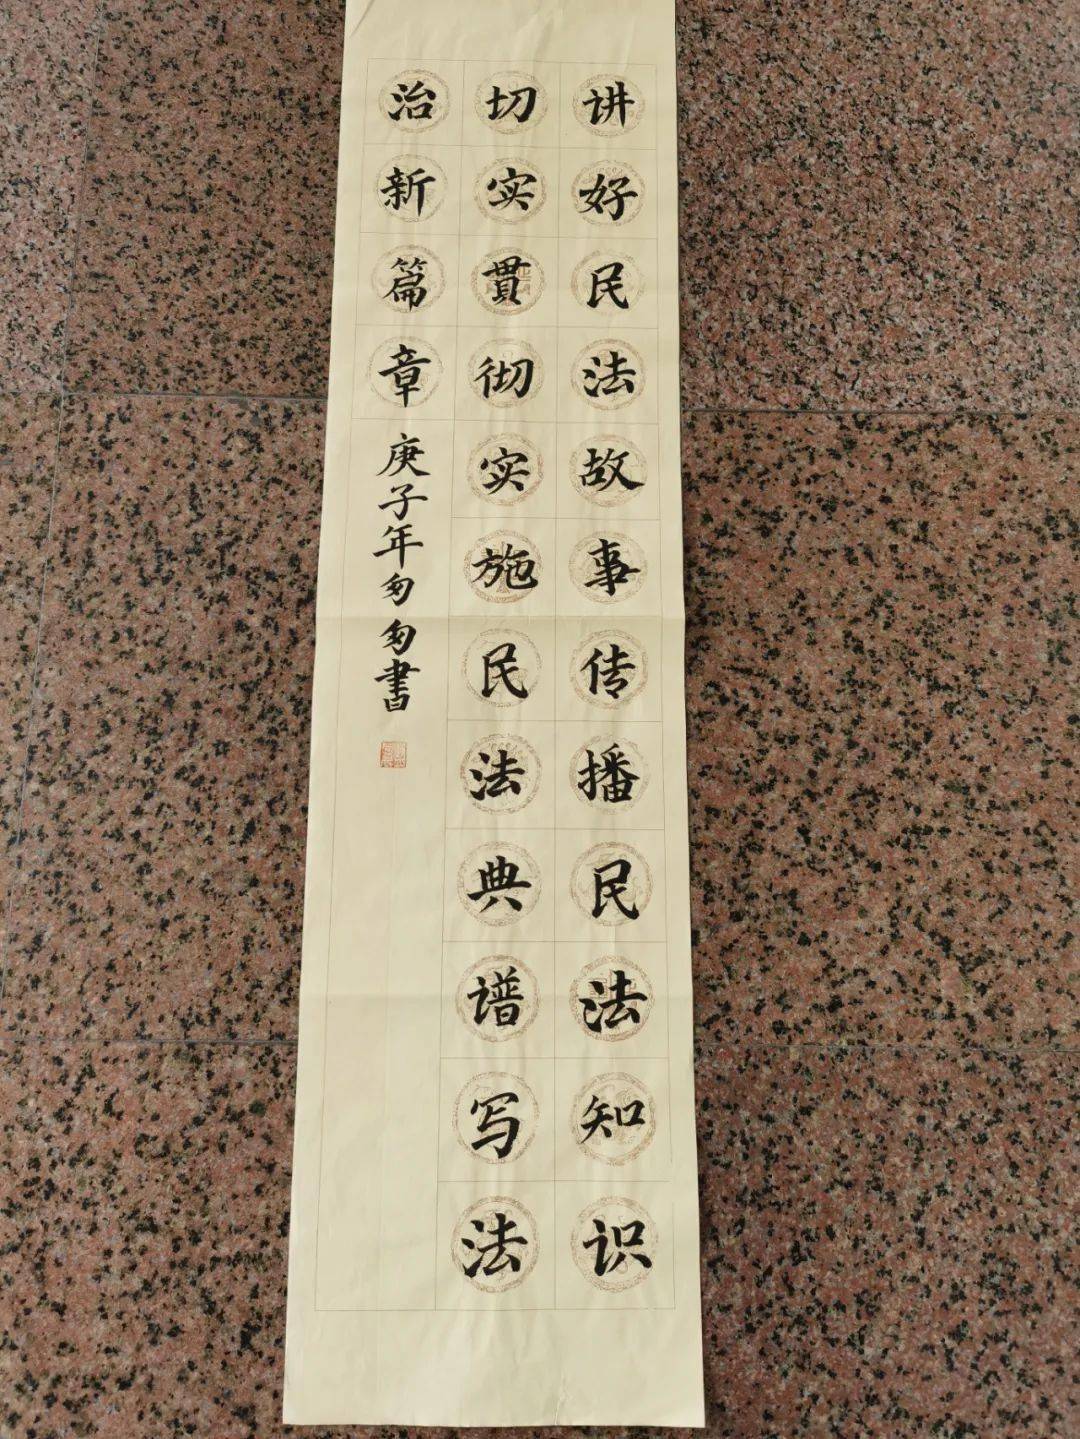 讲好民法故事传播民法知识
切实贯彻实施民法典谱写法
治新篇章
庚子年匆匆書